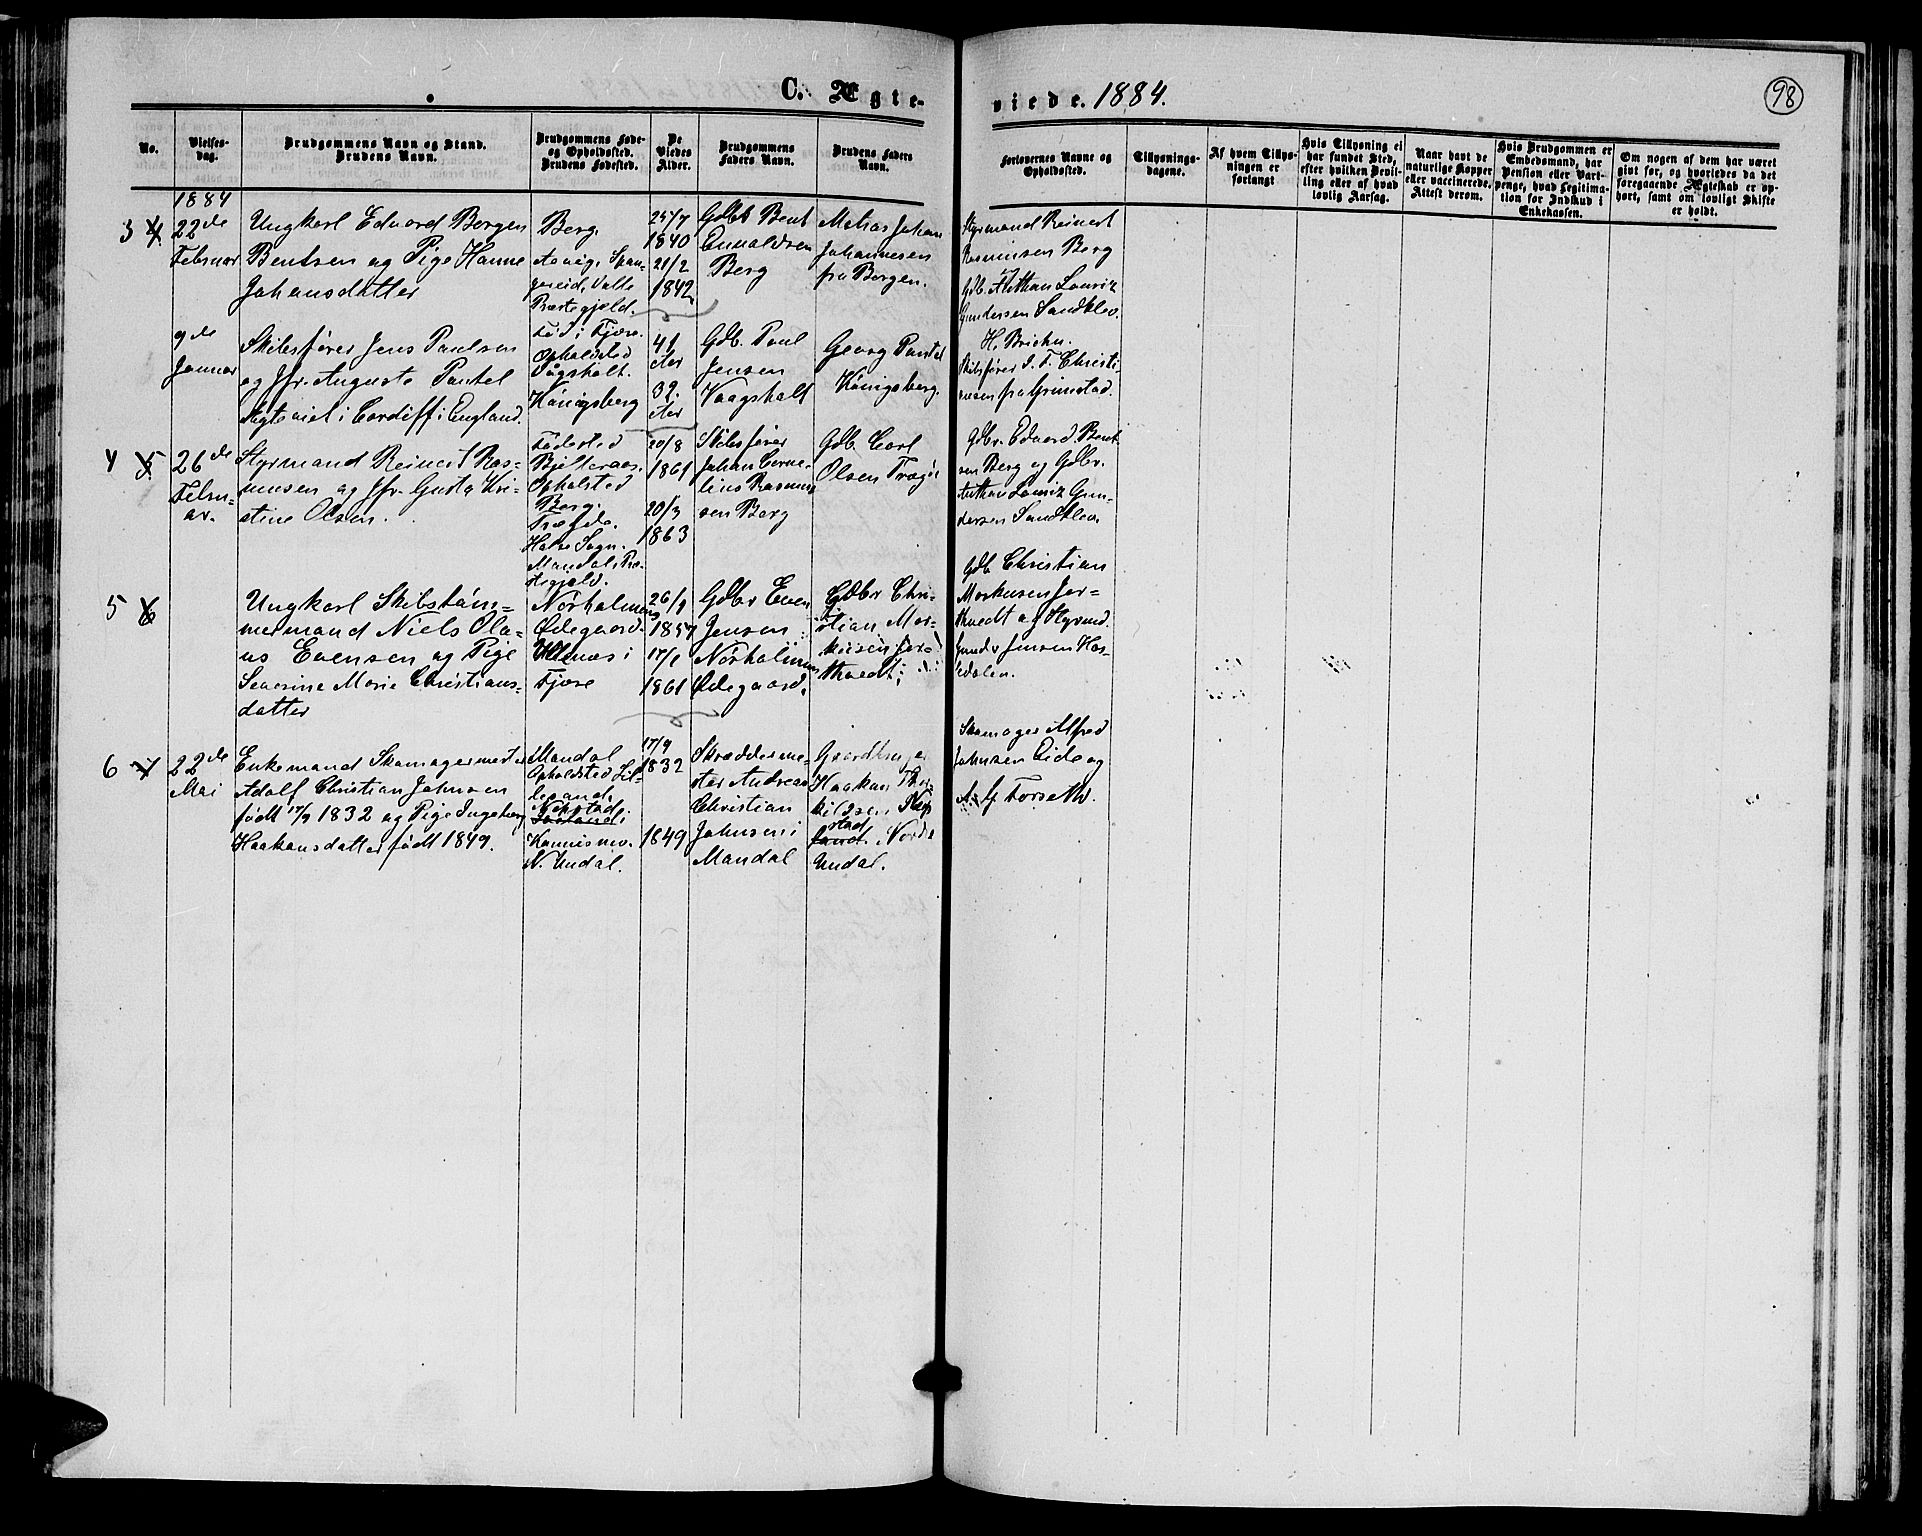 C. Ægte-
viede. 1884.
98
No.
Vielses-
dag.
Brudgommens Navn og Stand.
Brudens Navn.
Brudgommens Føde-
og Opholdsted.
Brudens Fødested.
De
Viedes
Alder.
Brudgommens
Faders Navn.
Brudens Faders
Navn.
Forlovernes Navne og
Opholdsted.
Tillysnings-
dagene.
Af hvem Tillys-
ningen er
forlangt
Hvis Tillysning ei
har fundet Sted,
efter hvilken Bevil-
ling eller af hvad
lovlig Aarsag.
Naar havt de
naturlige Kopper
eller vaccinerede.
Attest derom.
Hvis Brudgommen er
Embedsmand, har
Pension eller Vart-
penge, hvad Legitima-
tion for Indskud i
Enkekassen.
Om nogen af dem har været
gift før, og hvorledes da det
foregaaende Ægteskab er op-
hørt, samt om lovligt Skifte
er holdt.
1884
3 4
22de
Februar
Ungkarl Edvard Bergen
Bentsen og Pige Hanne
Johansdatter
Berg.
Aavig, Span-
gereid, Valle
Præstegjeld.
25/7
1840
21/2
1842
Gdbr Bent
Gunvaldsen
Berg
Matias Johan
Johannesen
fra Bergen.
Styrmand Reinert
Rasmusen Berg
og
Gdb. Anthon Louriz
Gundersen Sandklev.
9de
Januar
Skibsfører Jens Paulsen
og Jfr. Auguste Pantel
Ægteviet i Cardiff i England.
Fød i Fjære.
Opholdsted
Vågsholt.
Königsberg
41
Aar
32.
Aar
Gdb. Poul
Jensen
Vaagsholt
Georg Pantel
Königsberg.
H. Briehn.
Skibsfører J. F. Christi-
ensen fra Grimstad.
4 5
26de
Febru-
ar.
Styrmand Reinert Ras-
musen og Jfr. Gusta Kri-
stine Olsen.
Fødested
Bjelteraas.
Opholsted
Berg.
Træfde.
Halse Sogn.
Mandals Præ-
stegjeld.
20/8
1861
20/3
1863
Skibsfører
Johan Corne-
lius Rasmus
sen Berg
Gdb. Carl
Olsen
Gdbr. Edvard Bent
sen Berg og Gdbr.
Anthon Louriz Gun-
dersen Sandklev.
5 6
Ungkarl Skibstøm-
mermand Niels Ola-
us Evensen og Pige
Severine Marie Christians-
datter
Nörholmens
Ødegaard.
Ullenæs i
Fjære
26/9
1857
17/1
1861
Gdbr Even
Jensen
Nörholmens
Ødegaard.
Gdbr Chri-
stian Mar-
kusen Jor-
thvedt;
Gdb Christian
Markusen Jor-
thvedt og Styrmd.
Gunder Jensen Has-
sedalen.
6 7
22de
Mai
Enkemand Skomagermester
Adolf Christian Johnsen
født 17/9 1832 og Pige Ingeborg
Haakansdatter født 1849.
Mandal
Opholdsted Lil-
lesand.
Nepstad i
N. Undal.
17/9
1832
1849
Skræddermes-
ter Andreas
Christian
Johnsen i
Mandal
Gaardbruger
Haakan Thor
kildsen Nep
stad
Nordr
Undal.
Skomager Alfred
Johnsen Eide og
Forseth.